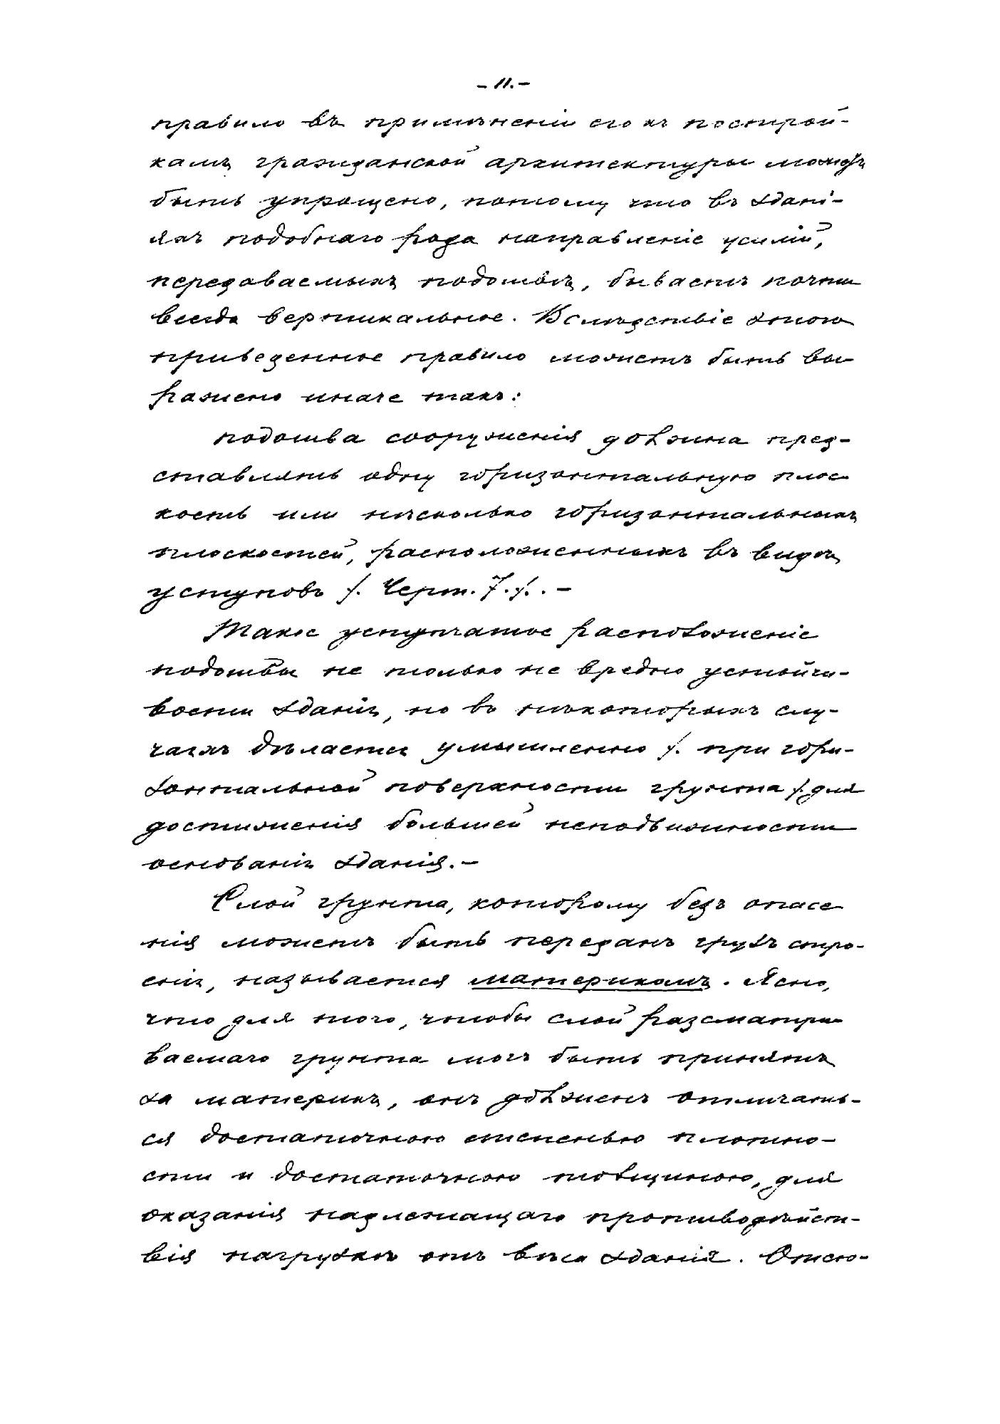 – 11. –
правило въ примѣненіи его къ построй-
камъ гражданской архитектуры можетъ
быть упрощено, потому что въ здані-
яхъ подобнаго рода направленіе усилій,
передаваемыхъ подошвѣ, бываетъ почти
всегда вертикальное. Вслѣдствіе этого
приведенное правило можетъ быть вы-
ражено иначе такъ:
подошва сооруженія должна пред-
ставлять одну горизонтальную плос-
кость или нѣсколько горизонтальныхъ
плоскостей, расположенныхъ въ видѣ
уступовъ /. Черт. 7./. –
Такое уступчатое расположеніе
подошвы не только не вредно устойчи-
вости зданій, но въ нѣкоторыхъ слу-
чаяхъ дѣлается умышленно /. при гори-
зонтальной поверхности грунта /. для
достиженія большей неподвижности
основанія зданія. –
Слой грунта, которому безъ опасе
нія можетъ быть переданъ грузъ стро-
енія, называется материкомъ. Ясно,
что для того, чтобы слой разсматри
ваемаго грунта могъ быть принятъ
за материкъ, онъ долженъ отличать-
ся достаточною степенью плотно-
сти и достаточною толщиною, для
оказанія надлежащаго противодѣйст-
вія нагрузкѣ отъ вѣса зданія. Отсю-